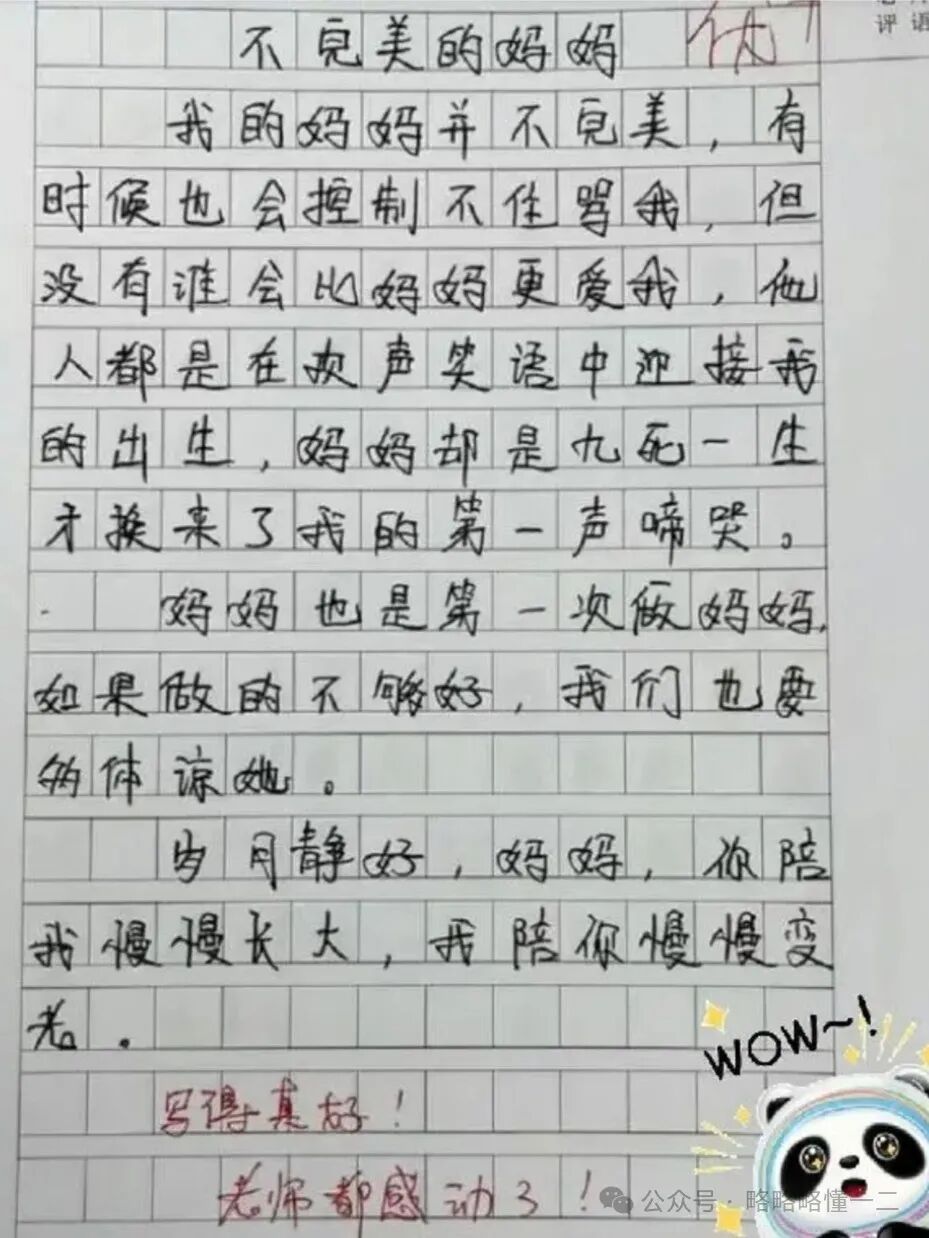 不完美的妈妈 优
评语
我的妈妈并不完美，有
时候也会控制不住骂我，但
没有谁会比妈妈更爱我，他
人都是在欢声笑语中迎接我
的出生，妈妈却是九死一生
才换来了我的第一声啼哭。
妈妈也是第一次做妈妈，
如果做的不够好，我们也要
多体谅她。
岁月静好，妈妈，你陪
我慢慢长大，我陪你慢慢变
老。
WOW~!
写得真好！
老师都感动了！
公众号·略略略懂一二